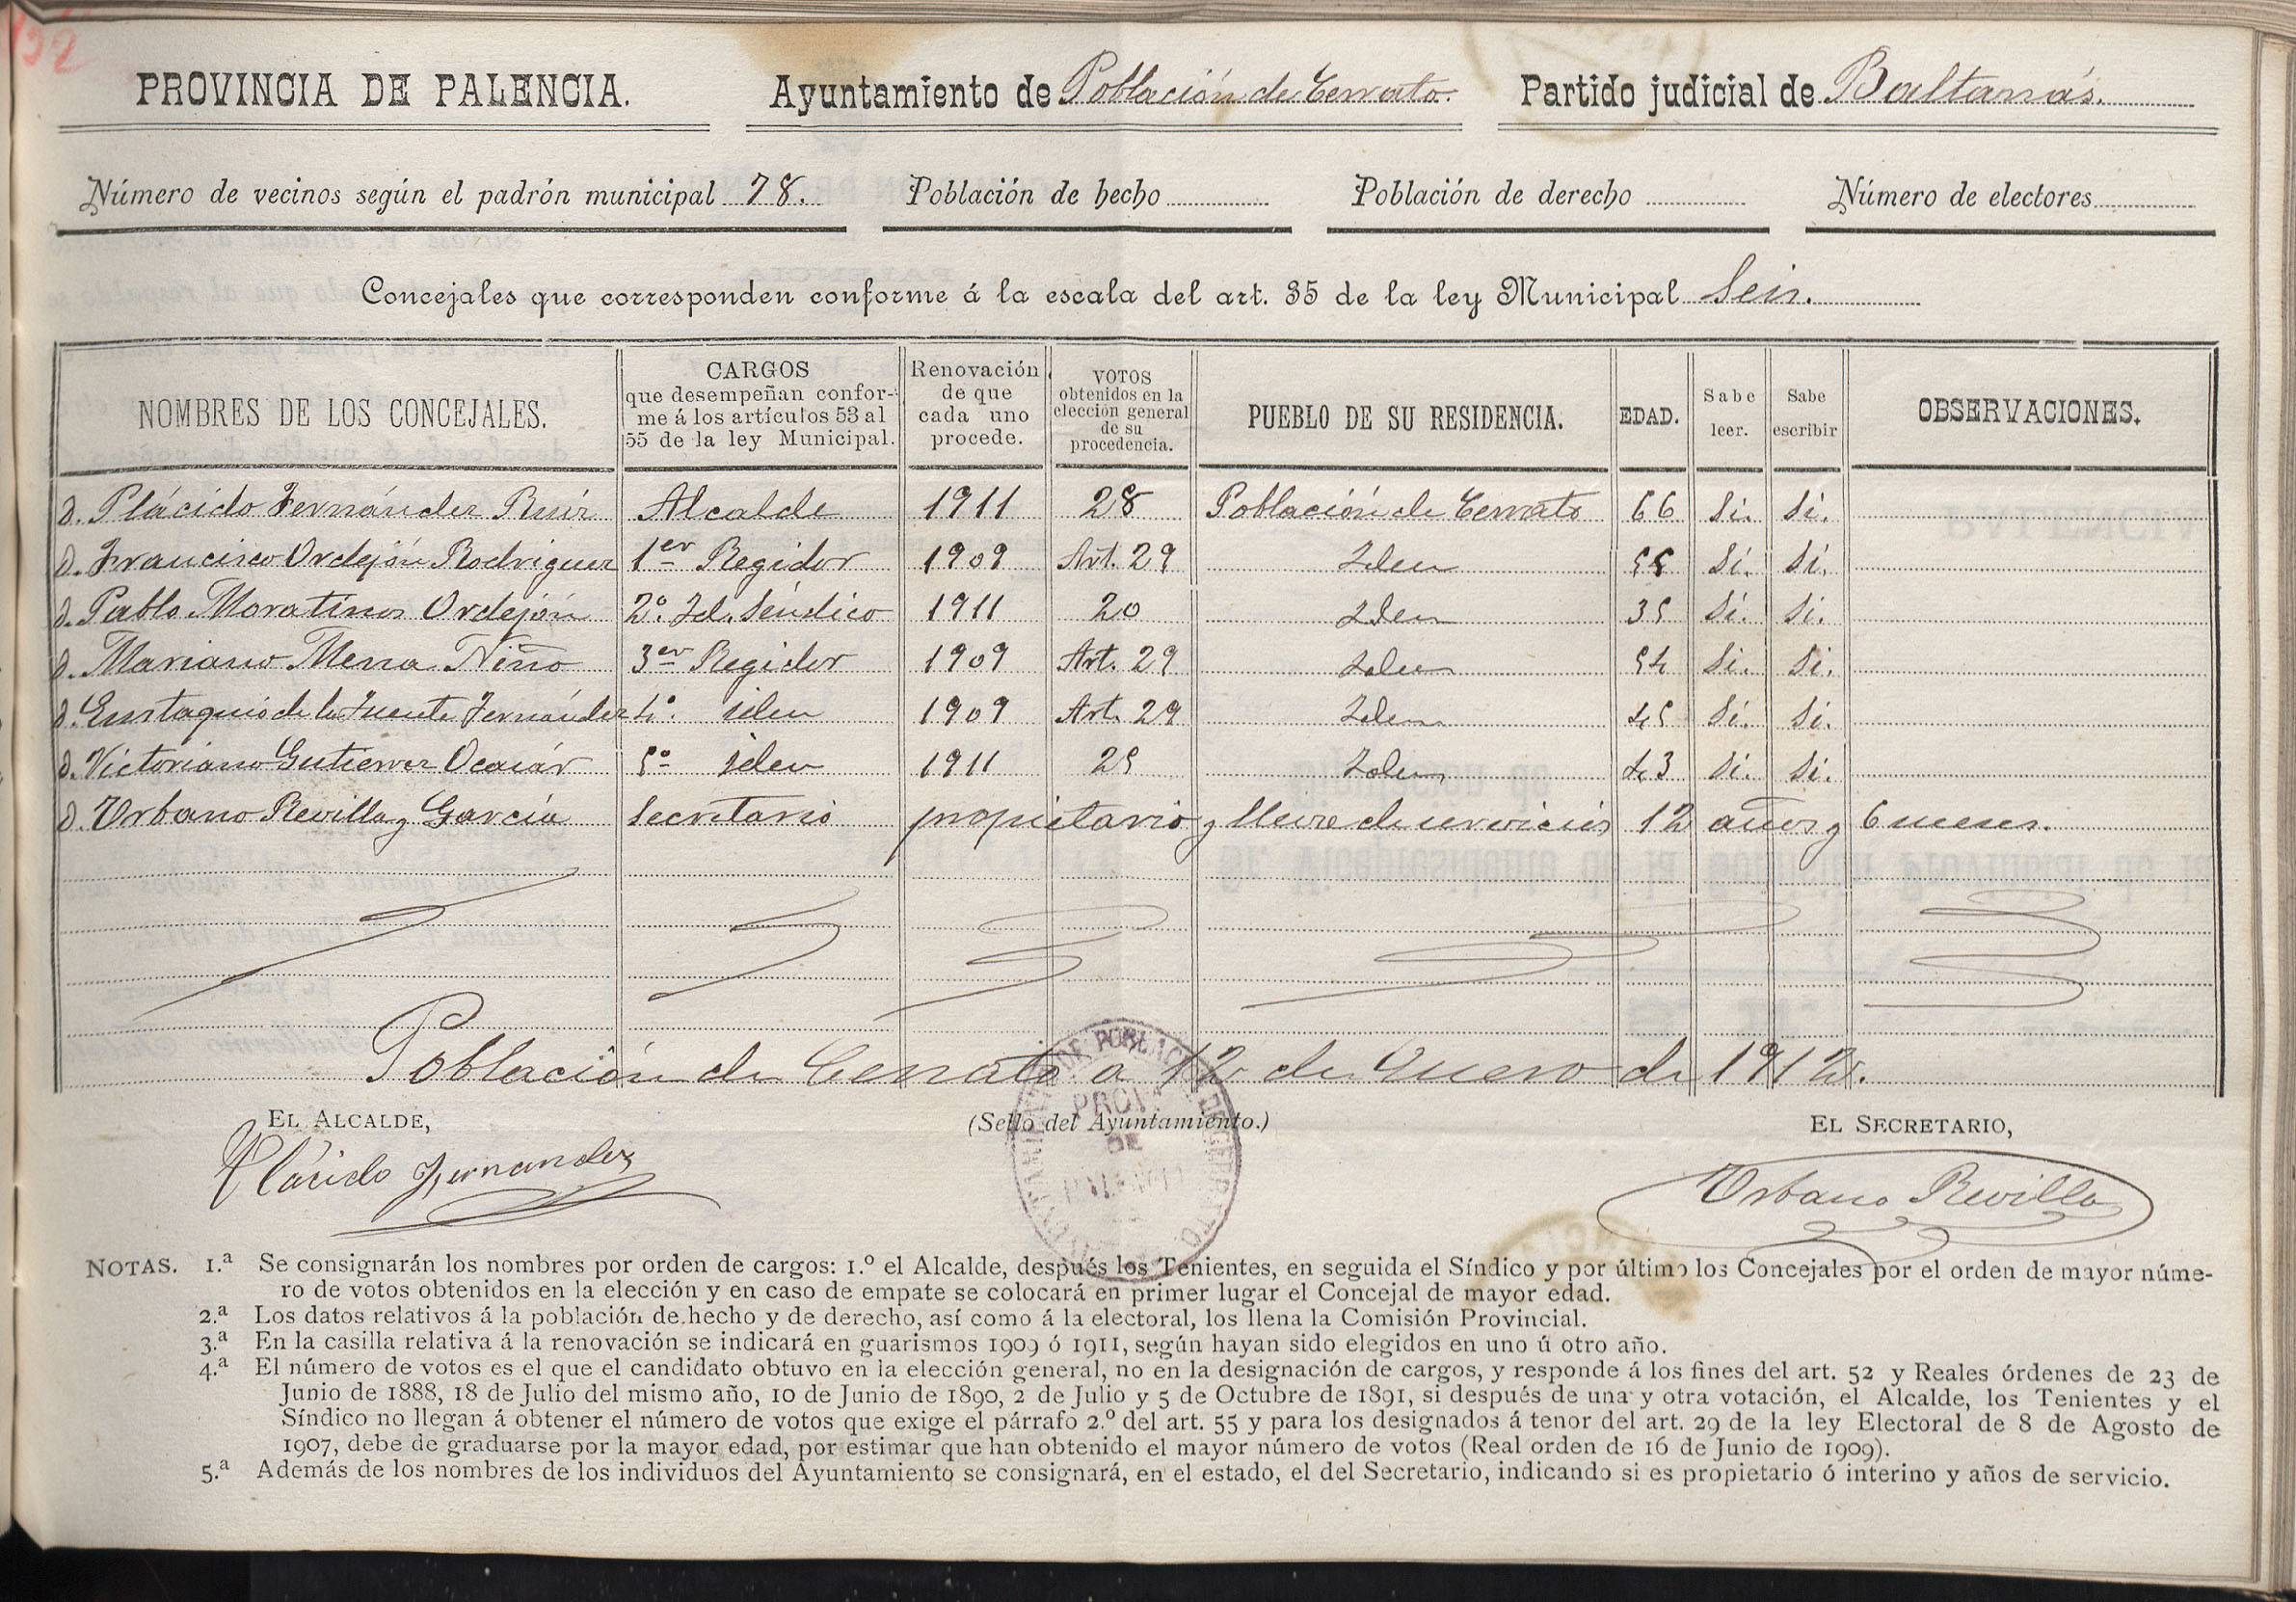 PROVINCIA DE PALENCIA. Ayuntamiento de Población de Cerrato. Partido judicial de Baltanás.
Número de vecinos según el padrón municipal 78. Población de hecho Población de derecho Número de electores
Concejales que corresponden conforme á la escala del art. 35 de la ley Municipal Seis.
NOMBRES DE LOS CONCEJALES. CARGOS que desempeñan conforme á los artículos 53 al 55 de la ley Municipal. Renovación de que cada uno procede. VOTOS obtenidos en la elección general de su procedencia. PUEBLO DE SU RESIDENCIA. EDAD. Sabe leer. Sabe escribir OBSERVACIONES.
D. Plácido Fernández Ruiz Alcalde 1911 28 Población de Cerrato 66 Si. Si.
D. Francisco Ordejón Rodriguez 1er Regidor 1909 Art. 29 Idem Si. Si.
D. Pablo Moratinos Ordejón 2º. Id. Síndico 1911 20 Idem 35 Si. Si.
D. Mariano Mena Niño 3er Regidor 1909 Art. 29 Idem 54 Si. Si.
D. Eustaquio de la Fuente Fernández 4º. idem 1909 Art. 29 Idem 45 Si. Si.
D. Victoriano Gutierrez Ocaiár 5º idem 1911 25 Idem 43 Si. Si.
D. Urbano Revilla y García Secretario propietario y lleva de servicios 12 años y 6 meses.
Población de Cerrato a 12 de Enero de 1912.
EL ALCALDE, (Sello del Ayuntamiento.) EL SECRETARIO,
Plácido Fernandez Urbano Revilla
NOTAS. 1.ª Se consignarán los nombres por orden de cargos: 1.º el Alcalde, después los Tenientes, en seguida el Síndico y por último los Concejales por el orden de mayor núme-
ro de votos obtenidos en la elección y en caso de empate se colocará en primer lugar el Concejal de mayor edad.
2.ª Los datos relativos á la población de hecho y de derecho, así como á la electoral, los llena la Comisión Provincial.
3.ª En la casilla relativa á la renovación se indicará en guarismos 1909 ó 1911, según hayan sido elegidos en uno ú otro año.
4.ª El número de votos es el que el candidato obtuvo en la elección general, no en la designación de cargos, y responde á los fines del art. 52 y Reales órdenes de 23 de
Junio de 1888, 18 de Julio del mismo año, 10 de Junio de 1890, 2 de Julio y 5 de Octubre de 1891, si después de una y otra votación, el Alcalde, los Tenientes y el
Síndico no llegan á obtener el número de votos que exige el párrafo 2.º del art. 55 y para los designados á tenor del art. 29 de la ley Electoral de 8 de Agosto de
1907, debe de graduarse por la mayor edad, por estimar que han obtenido el mayor número de votos (Real orden de 16 de Junio de 1909).
5.ª Además de los nombres de los individuos del Ayuntamiento se consignará, en el estado, el del Secretario, indicando si es propietario ó interino y años de servicio.